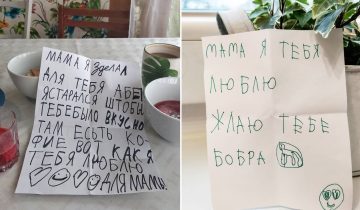 МАМА Я ЗДЕЛАЛ
ДЛЯ ТЕБЯ АБЕ
ЯСТАРАЛСЯ ШТОБЫ
ТЕБЕБЫЛО ВКУСНО
ТАМ ЕСТЬ КО-
ФИЕ ВОТ КАК Я
ТЕБЯ ЛЮБЛЮ
ДЛЯ МАМЫ
МАМА Я ТЕБЯ
ЛЮБЛЮ
ЖЛАЮ ТЕБЕ
БОБРА